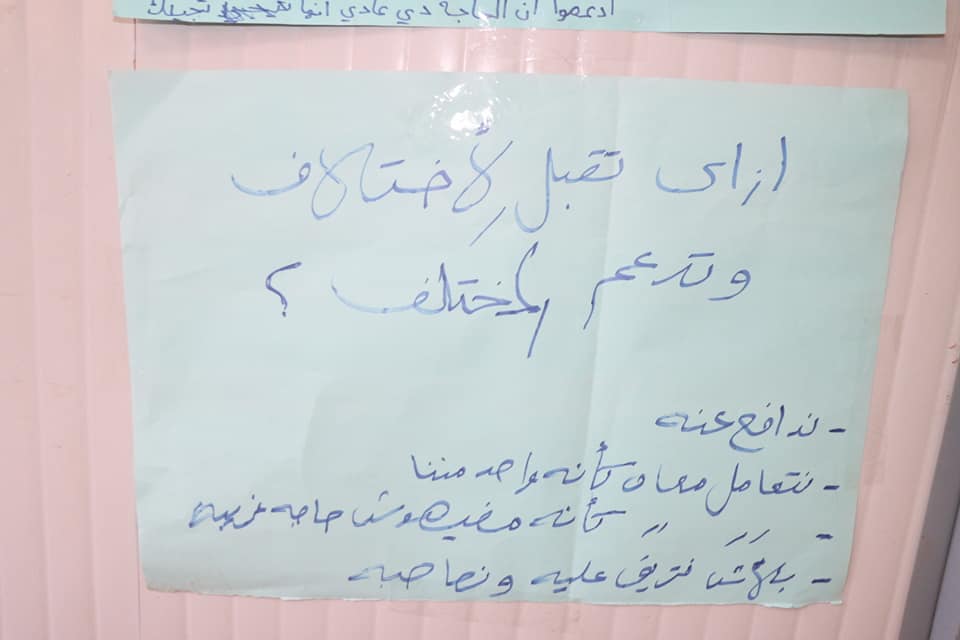 ادعموا ان الحاجة دي عادي انها تجيلك
ازاى تقبل الأختلاف
وتدعم المختلف ؟
- ندافع عنه
- نتعامل معاه كأنه واحد مننا
- 〃 〃 كأنه مفيهوش حاجه غريبه
- بلاش نتريق عليه ونصاحبه